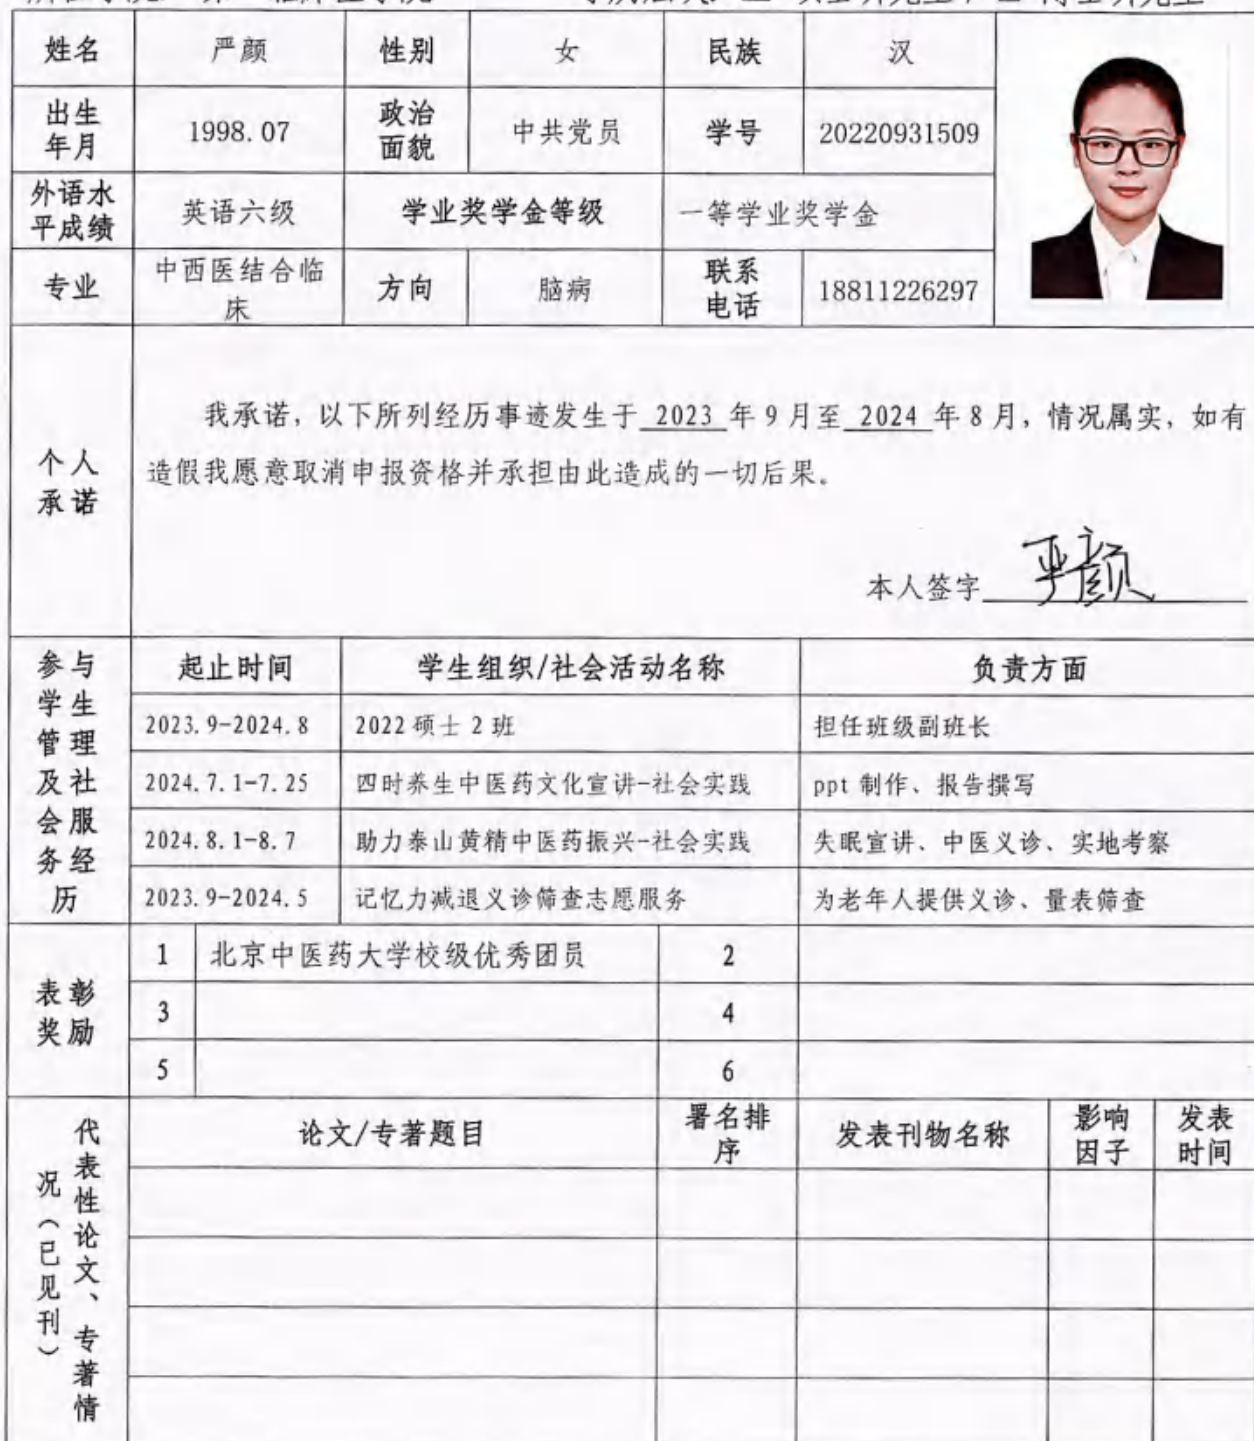 姓名 严颜 性别 女 民族 汉
出生年月 1998.07 政治面貌 中共党员 学号 20220931509
外语水平成绩 英语六级 学业奖学金等级 一等学业奖学金
专业 中西医结合临床 方向 脑病 联系电话 18811226297
个人承诺
我承诺，以下所列经历事迹发生于 2023 年 9 月至 2024 年 8 月，情况属实，如有
造假我愿意取消申报资格并承担由此造成的一切后果。
本人签字 严颜
参与学生管理及社会服务经历
起止时间 学生组织/社会活动名称 负责方面
2023.9-2024.8 2022 硕士 2 班 担任班级副班长
2024.7.1-7.25 四时养生中医药文化宣讲-社会实践 ppt 制作、报告撰写
2024.8.1-8.7 助力泰山黄精中医药振兴-社会实践 失眠宣讲、中医义诊、实地考察
2023.9-2024.5 记忆力减退义诊筛查志愿服务 为老年人提供义诊、量表筛查
表彰奖励
1 北京中医药大学校级优秀团员 2
3 4
5 6
代表性论文、专著情况（已见刊）
论文/专著题目 署名排序 发表刊物名称 影响因子 发表时间